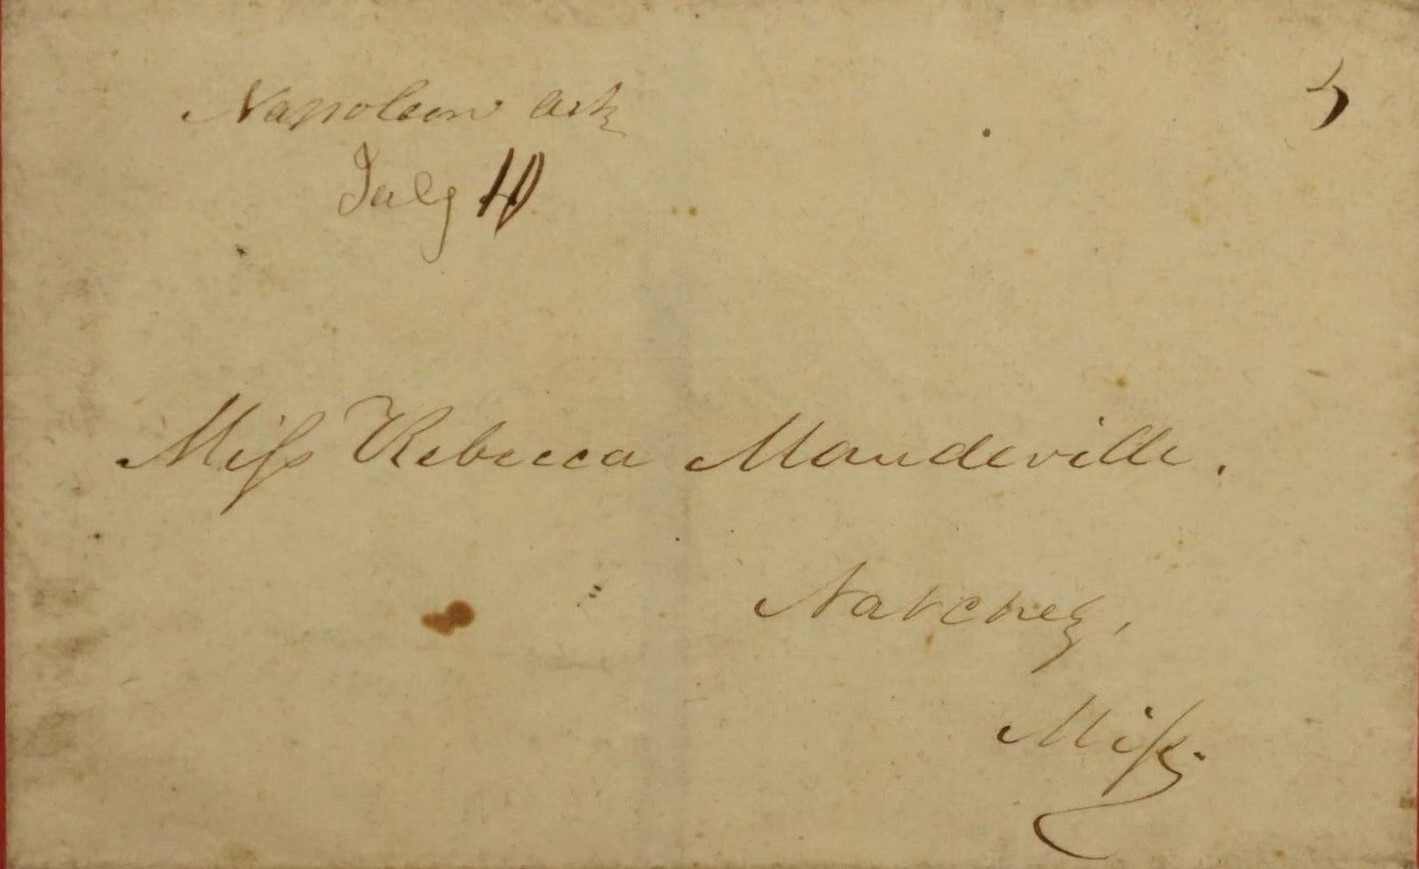 Napoleon Ark
July 10
5
Miss Rebecca Mandeville.
Natchez,
Miss.